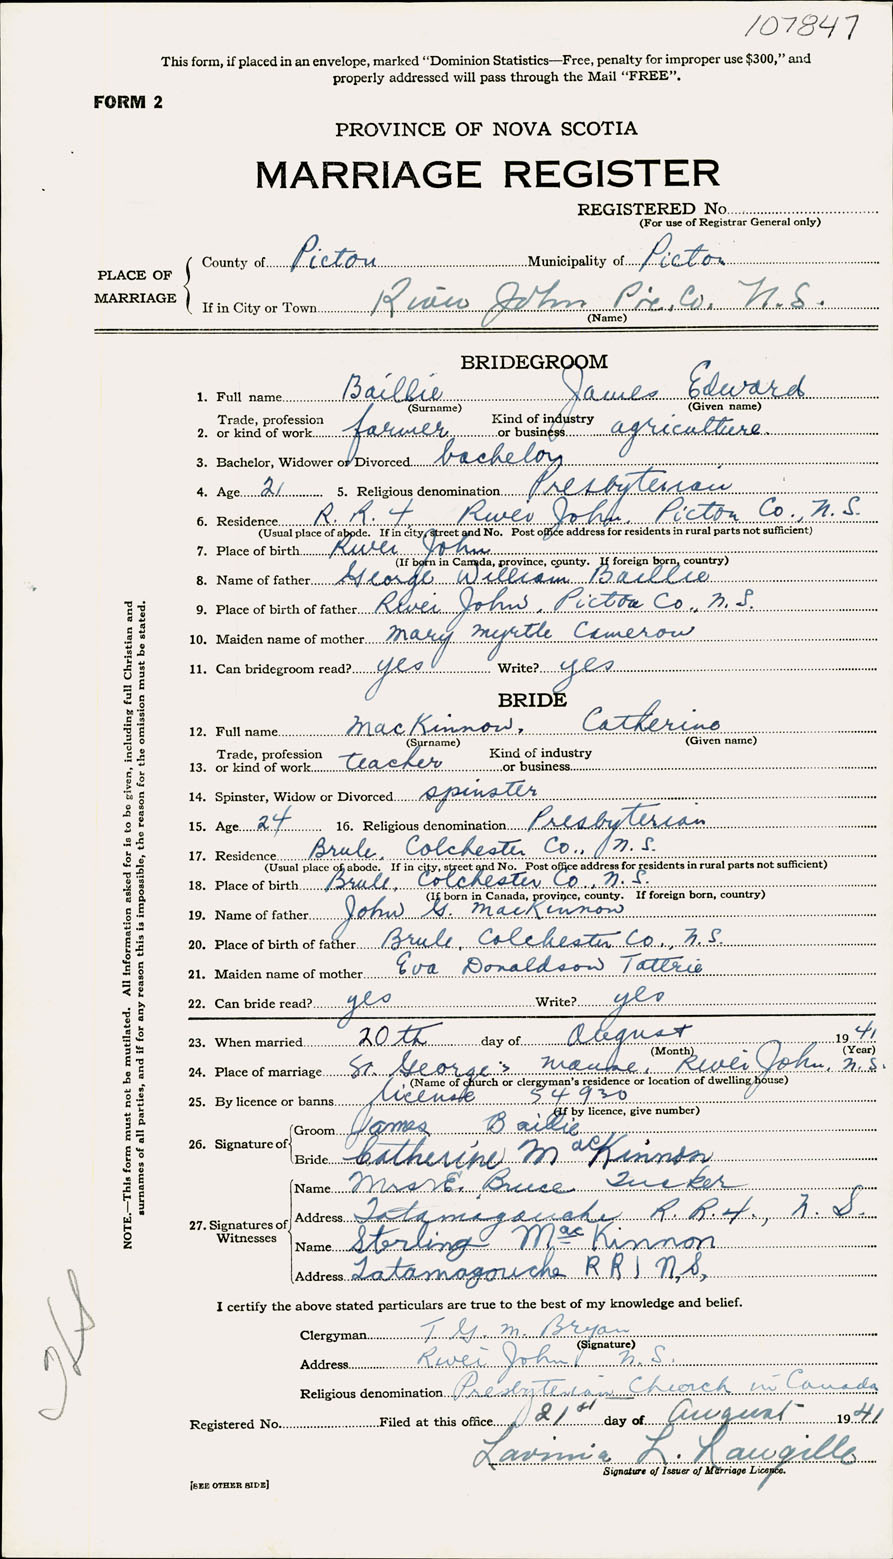 107847
This form, if placed in an envelope, marked "Dominion Statistics—Free, penalty for improper use $300," and
properly addressed will pass through the Mail "FREE".
FORM 2
PROVINCE OF NOVA SCOTIA
MARRIAGE REGISTER
REGISTERED No.
(For use of Registrar General only)
PLACE OF MARRIAGE
County of Pictou Municipality of Pictou
If in City or Town River John Pic. Co. N.S.
(Name)
BRIDEGROOM
1. Full name Baillie James Edward
(Surname) (Given name)
2. Trade, profession or kind of work farmer Kind of industry or business agriculture.
3. Bachelor, Widower or Divorced bachelor
4. Age 21 5. Religious denomination Presbyterian
6. Residence R. R. 4, River John, Pictou Co., N.S.
(Usual place of abode. If in city, street and No. Post office address for residents in rural parts not sufficient)
7. Place of birth River John
(If born in Canada, province, county. If foreign born, country)
8. Name of father George William Baillie
9. Place of birth of father River John, Pictou Co., N.S.
10. Maiden name of mother Mary Myrtle Cameron
11. Can bridegroom read? yes Write? yes
BRIDE
12. Full name MacKinnon, Catherine
(Surname) (Given name)
13. Trade, profession or kind of work teacher Kind of industry or business
14. Spinster, Widow or Divorced spinster
15. Age 24 16. Religious denomination Presbyterian
17. Residence Brule, Colchester Co., N.S.
(Usual place of abode. If in city, street and No. Post office address for residents in rural parts not sufficient)
18. Place of birth Brule, Colchester Co., N.S.
(If born in Canada, province, county. If foreign born, country)
19. Name of father John G. MacKinnon
20. Place of birth of father Brule, Colchester Co., N.S.
21. Maiden name of mother Eva Donaldson Tattrie
22. Can bride read? yes Write? yes
23. When married 20th day of August 1941
(Month) (Year)
24. Place of marriage St. George's Manse, River John, N.S.
(Name of church or clergyman's residence or location of dwelling house)
25. By licence or banns license 54930
(If by licence, give number)
26. Signature of Groom James Baillie
Bride Catherine MacKinnon
27. Signatures of Witnesses
Name Mrs E. Bruce Tucker
Address Tatamagouche R.R.4., N.S.
Name Sterling MacKinnon
Address Tatamagouche RR1 N.S,
I certify the above stated particulars are true to the best of my knowledge and belief.
Clergyman T. G. M. Bryan
(Signature)
Address River John, N.S.
Religious denomination Presbyterian Church in Canada
Registered No. Filed at this office 21st day of August 1941
Lavinia L. Langille
Signature of Issuer of Marriage Licence.
[SEE OTHER SIDE]
NOTE.—This form must not be mutilated. All information asked for is to be given, including full Christian and
surnames of all parties, and if for any reason this is impossible, the reason for the omission must be stated.